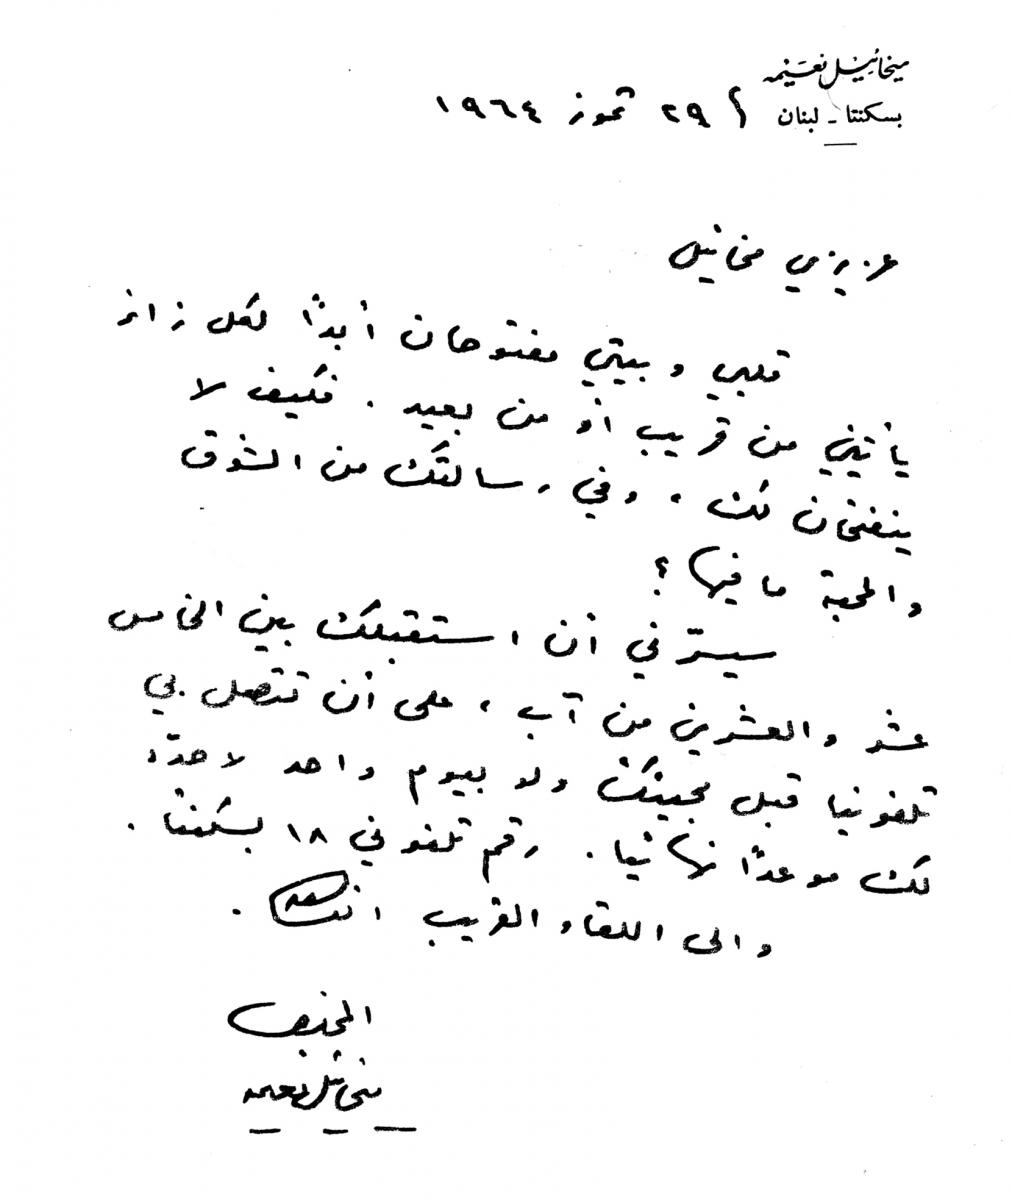 ميخائيل نعيمه
بسكنتا - لبنان في ٢٩ تموز ١٩٦٤
عزيزي مخائيل
قلبي و بيتي مفتوحان أبدًا لكل زائر
يأتيني من قريب أو من بعيد . فكيف لا
ينفتحان لك ، وفي رسالتك من الشوق
والمحبة ما فيها ؟
سيسرّني أن استقبلك بين الخامس
عشر والعشرين من آب ، على أن تتصل بي
تلفونيا قبل مجيئك ولو بيوم واحد لاحدّد
لك موعدًا نهائيا . رقم تلفوني ١٨ بسكنتا .
والى اللقاء القريب .
المخلص
ميخائيل نعيمه